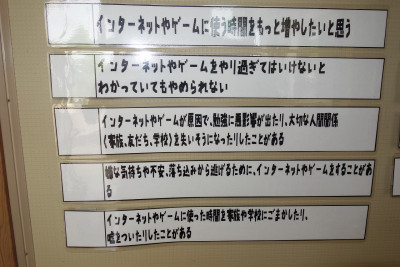 インターネットやゲームに使う時間をもっと増やしたいと思う
インターネットやゲームをやり過ぎてはいけないと
わかっていてもやめられない
インターネットやゲームが原因で、勉強に悪影響が出たり、大切な人間関係
(家族、友だち、学校)を失いそうになったりしたことがある
嫌な気持ちや不安、落ち込みから逃げるために、インターネットやゲームをすることがあ
る
インターネットやゲームに使った時間を家族や学校にごまかしたり、
嘘をついたりしたことがある